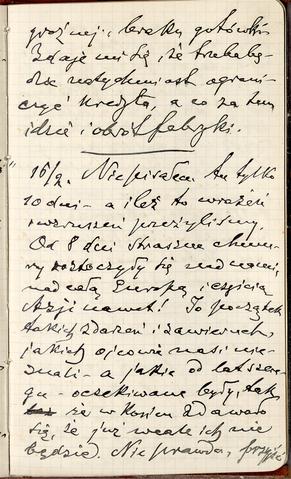 groźnej i braku gotówki.
Zdaje mi się, że trzeba bę-
dzie natychmiast ograni-
czyć kredyta, a co za tem
idzie i obrót fabryki.
16/9. Nie pisałem tu tylko
10 dni - a ileż to wrażeń
i wzruszeń przeżyliśmy.
Od 8 dni straszne chmu-
ry roztoczyły się nad nami,
nad całą Europą i częścią
Azji nawet! To początek
takich zdarzeń i zawieruch,
jakich ojcowie nasi nie
znali - a jakie od lat szere-
gu - oczekiwane były, tak
że w końcu zdawało
się, że już wcale ich nie
będzie. Nieprawda, przyjść